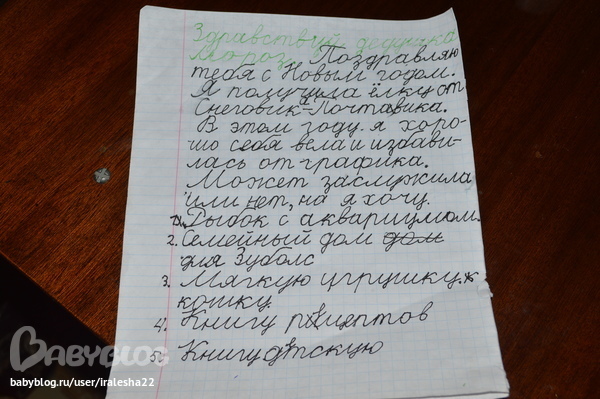 Здравствуй дедушка
Мороз. Поздравляю
тебя с Новым годом.
Я получила ёлку от
Снеговик-Почтавика.
В этом году я хоро-
шо себя вела и избави-
лась от графика.
Может заслужила
или нет, на я хочу.
1. Рыбок с аквариумом.
2. Семейный дом дом
для Зублс
3. Мягкую игрушку.
кошку
4. Книгу рецептов
5. Книгу детскую
BABYBLOG
babyblog.ru/user/iralesha22